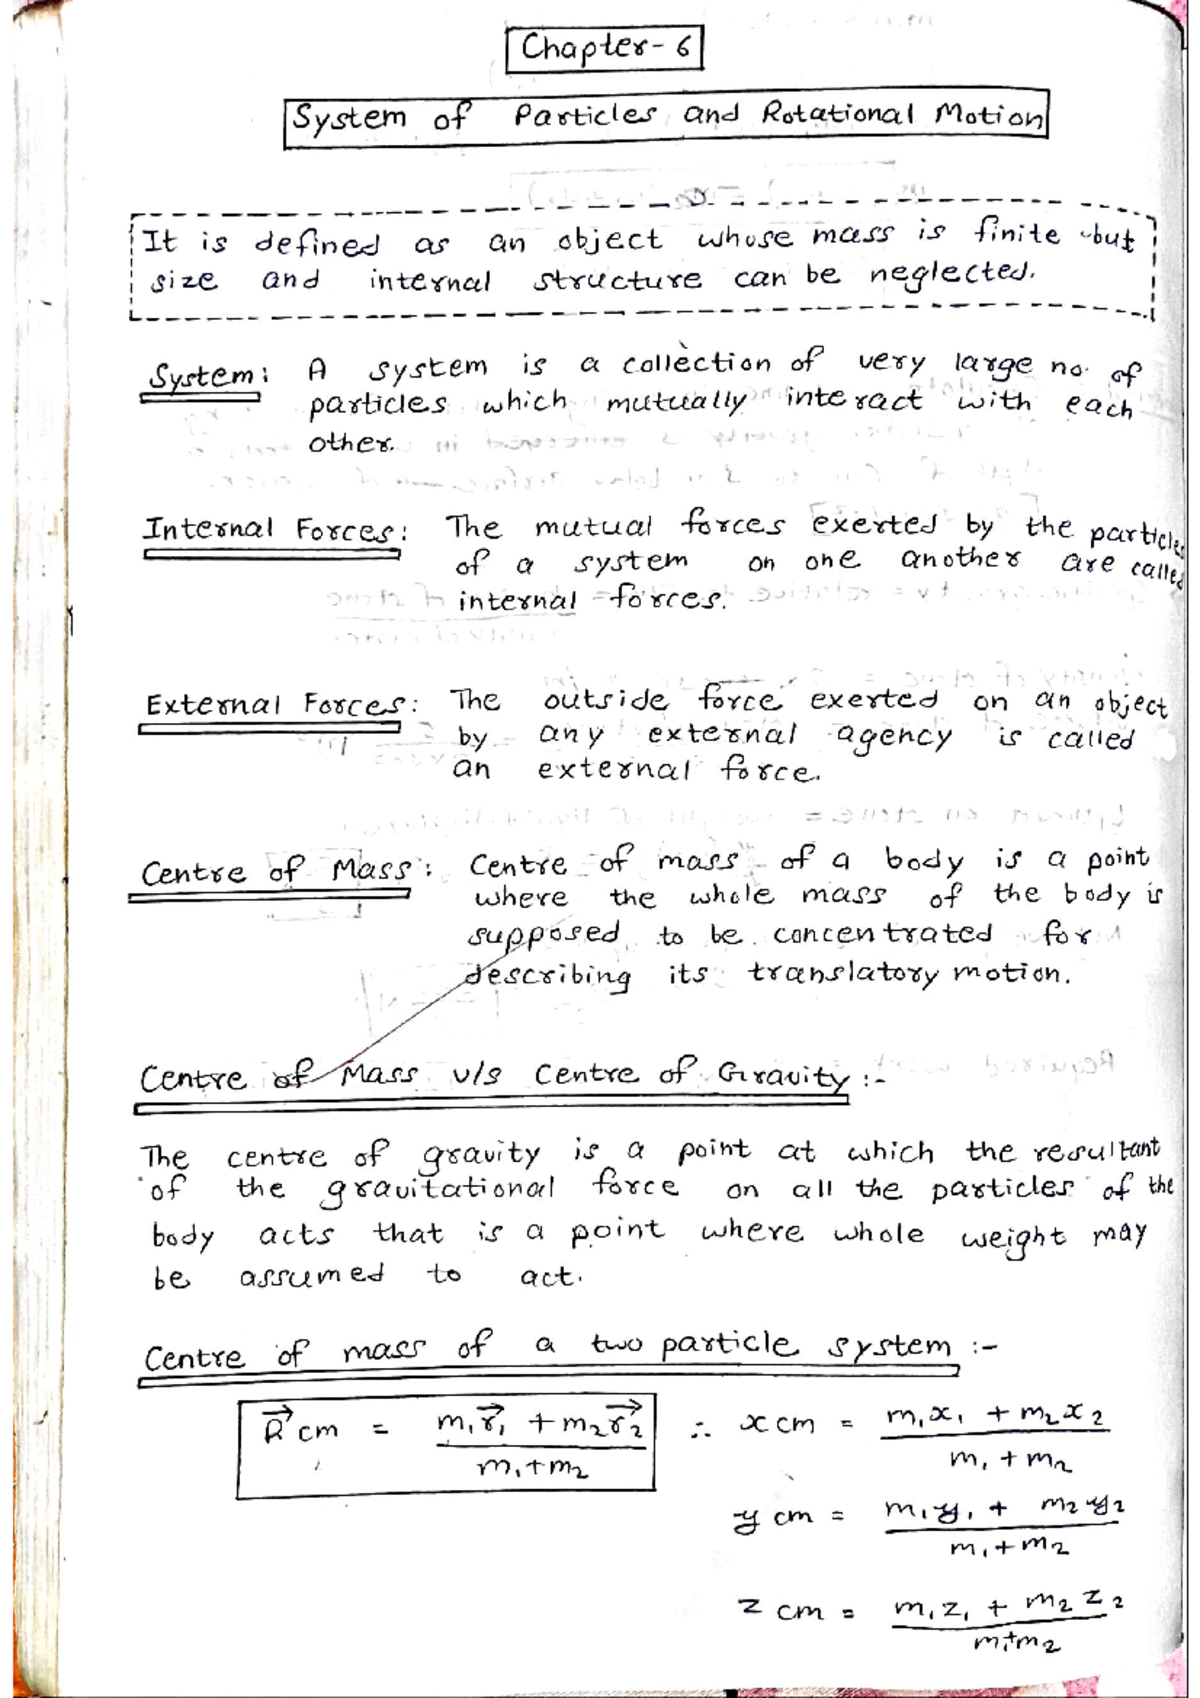 Chapter-6
System of Particles and Rotational Motion
It is defined as an object whose mass is finite but
size and internal structure can be neglected.
System: A system is a collection of very large no. of
particles which mutually interact with each
other.
Internal Forces: The mutual forces exerted by the particles
of a system on one another are called
internal forces.
External Forces: The outside force exerted on an object
by any external agency is called
an external force.
Centre of Mass: Centre of mass of a body is a point
where the whole mass of the body is
supposed to be concentrated for
describing its translatory motion.
Centre of Mass v/s Centre of Gravity :-
The centre of gravity is a point at which the resultant
of the gravitational force on all the particles of the
body acts that is a point where whole weight may
be assumed to act.
Centre of mass of a two particle system :-
R⃗cm = (m₁r⃗₁ + m₂r⃗₂) / (m₁+m₂) ∴ xcm = (m₁x₁ + m₂x₂) / (m₁ + m₂)
ycm = (m₁y₁ + m₂y₂) / (m₁+m₂)
zcm = (m₁z₁ + m₂z₂) / (m₁+m₂)